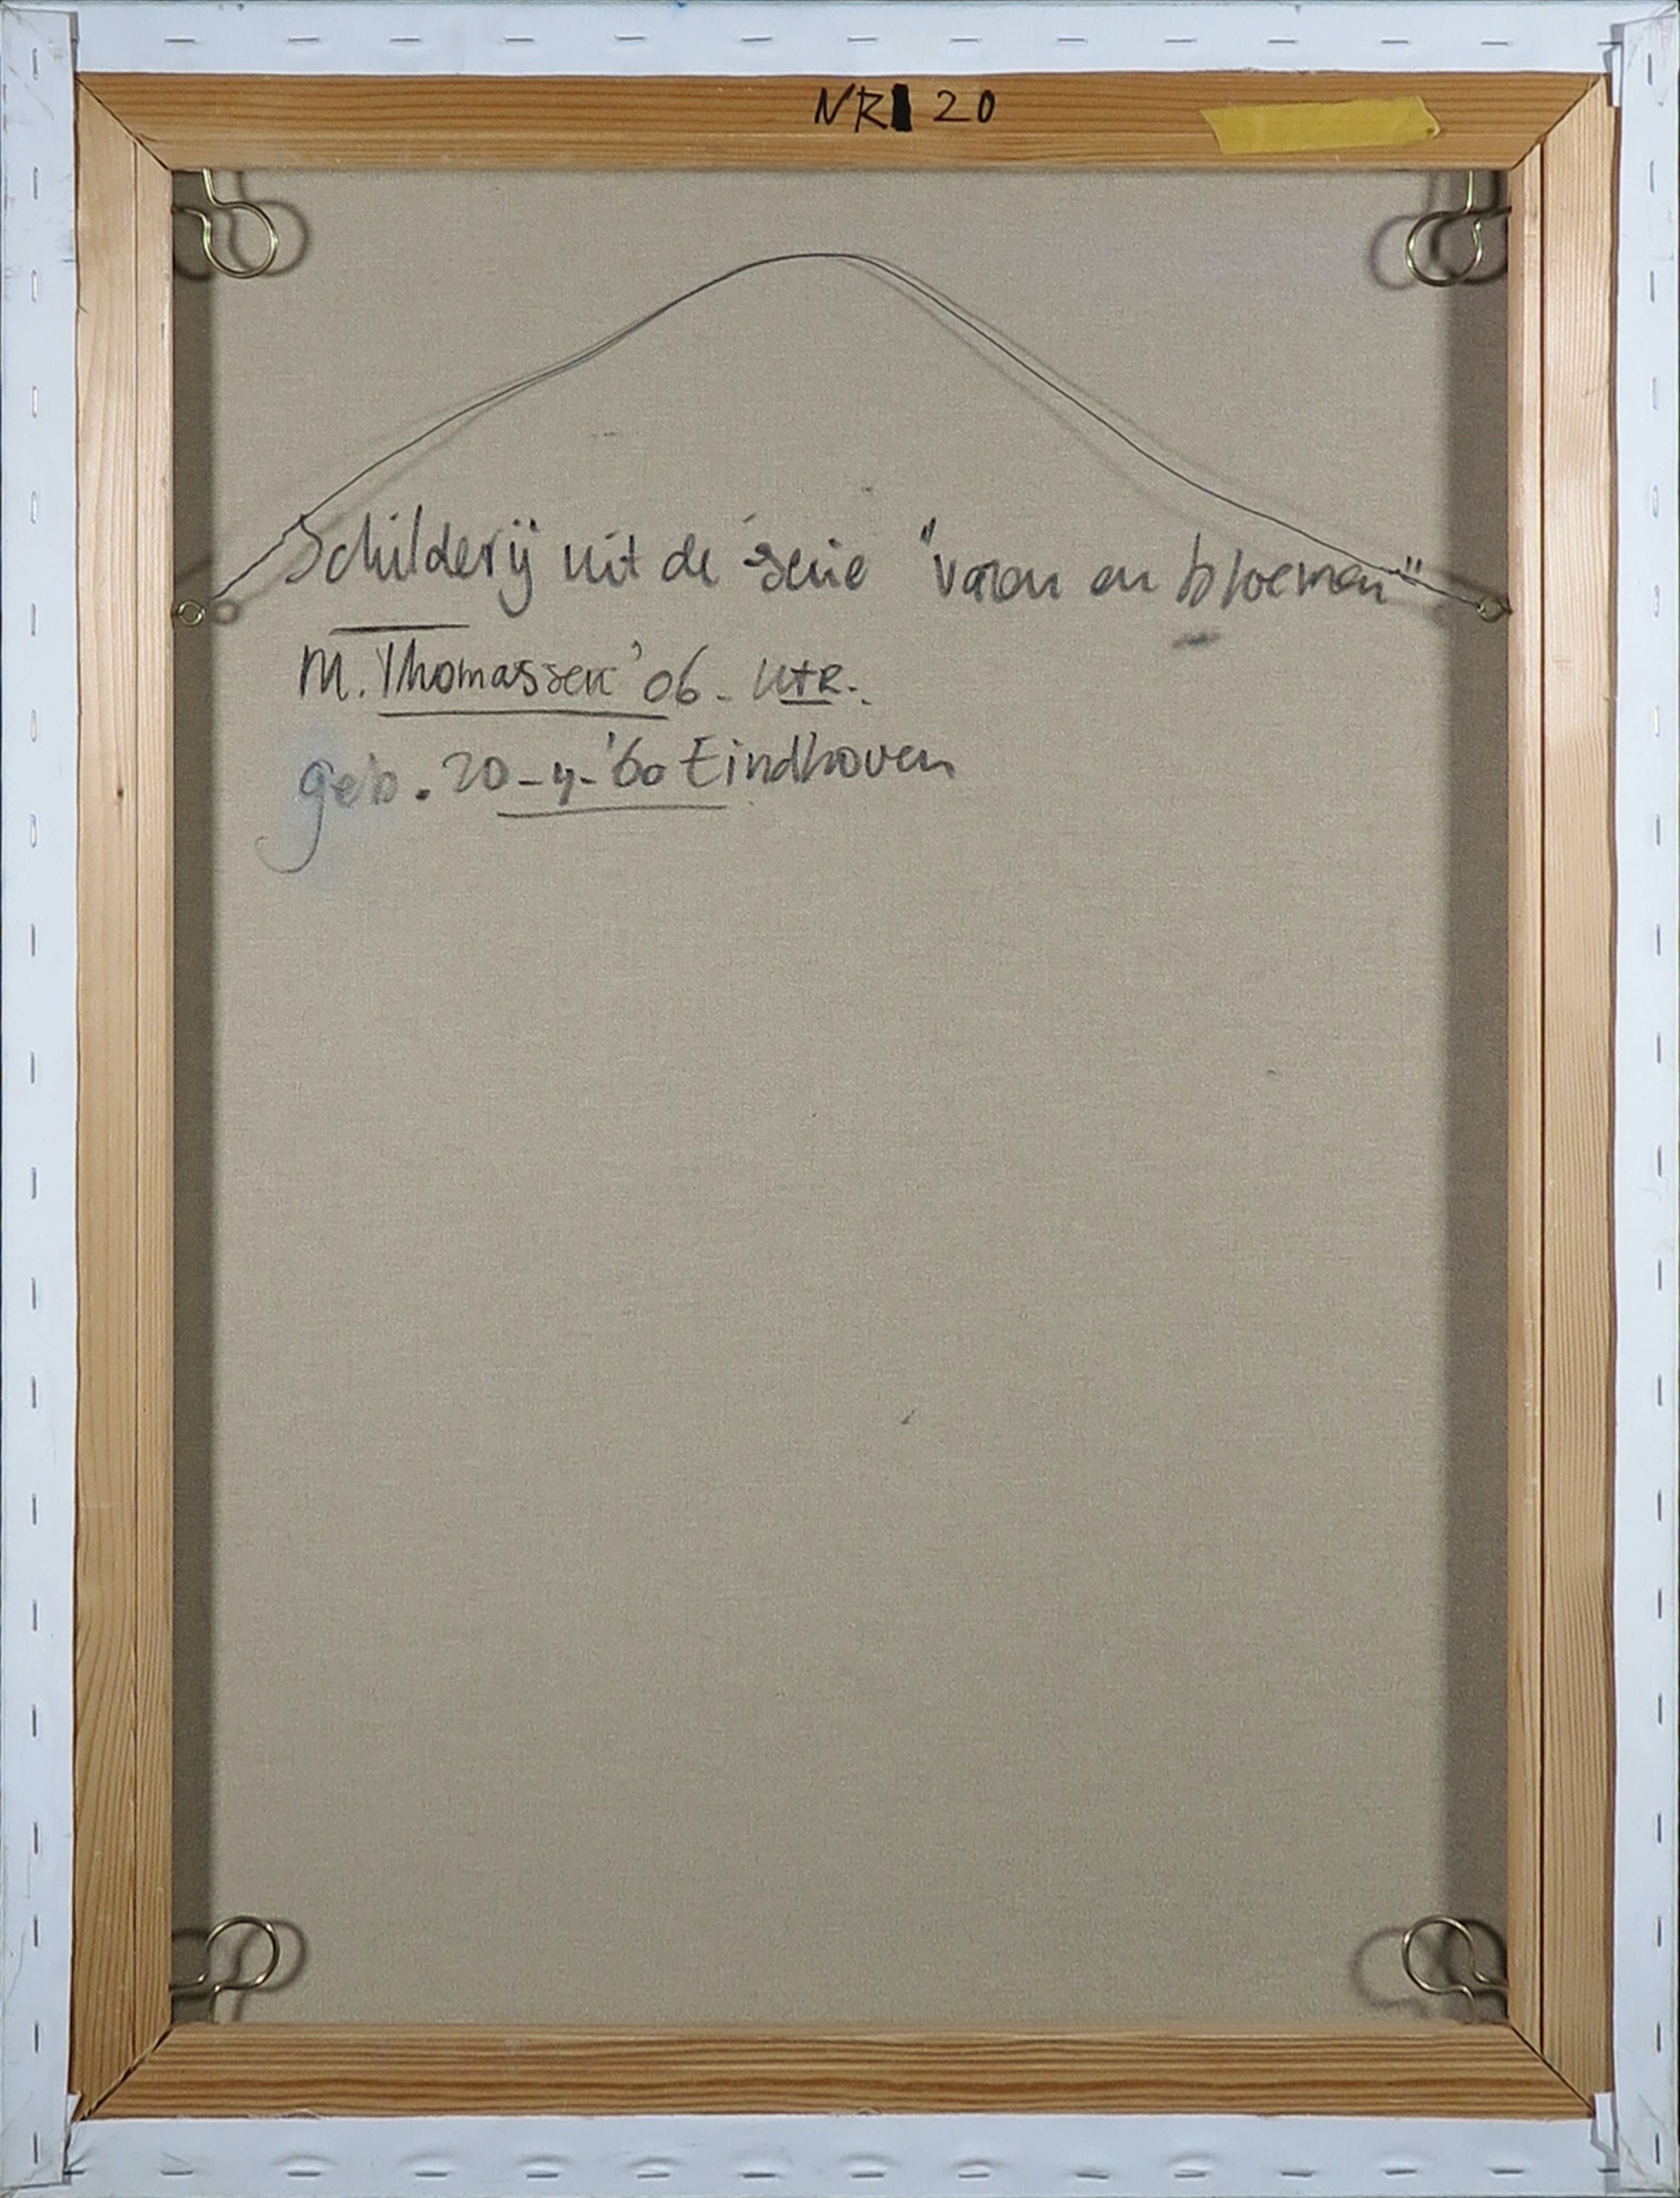 NR 20
Schilderij uit de serie "varen en bloemen"
M. Thomassen '06 - UtR.
geb. 20-4-'60 Eindhoven